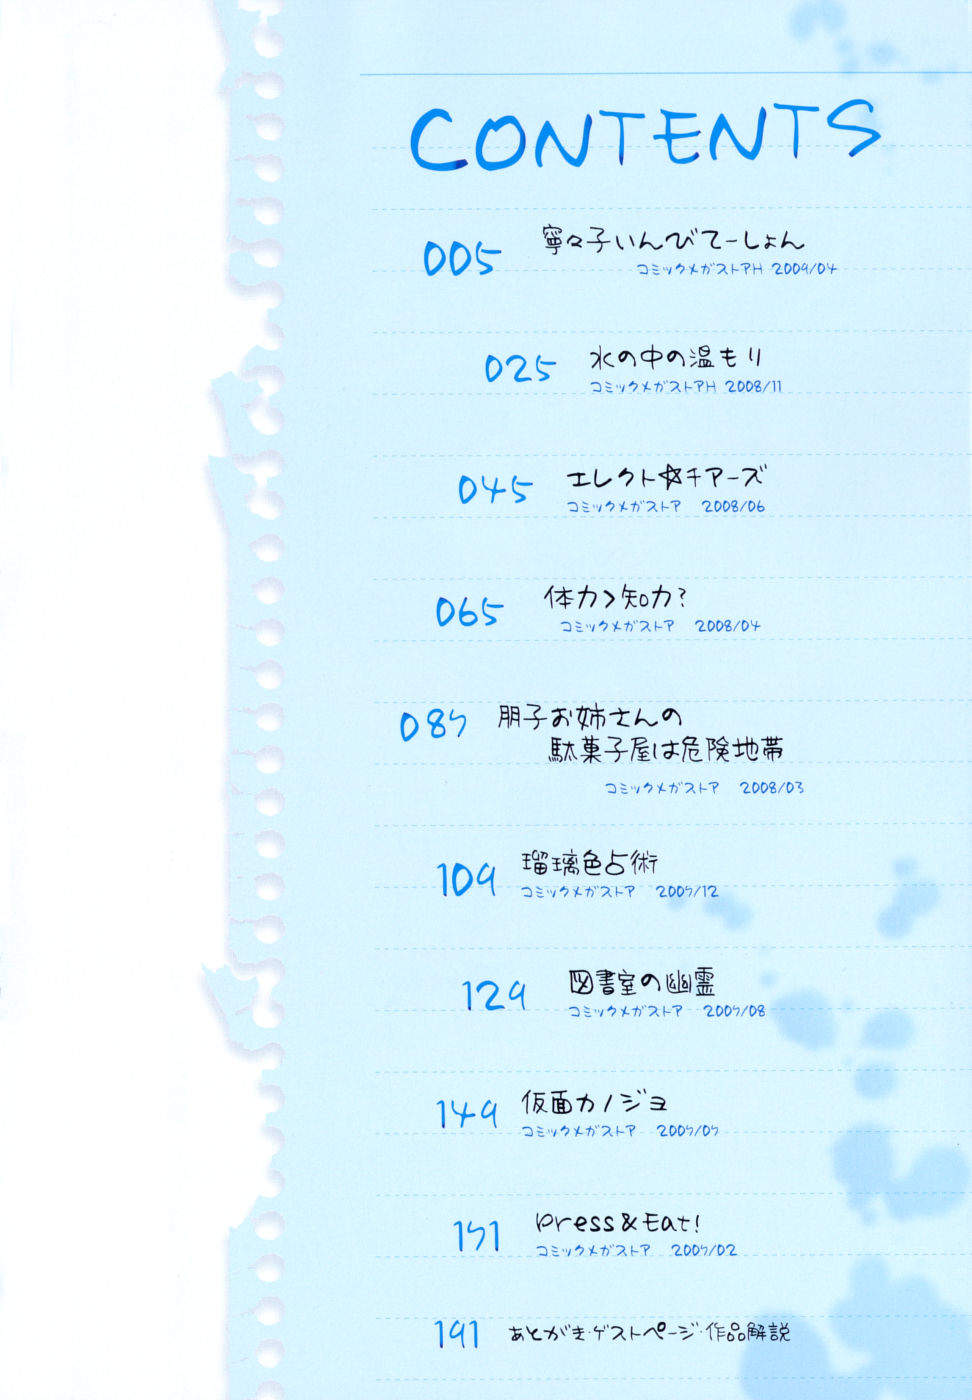 CONTENTS
005 寧々子いんびてーしょん
コミックメガストアH 2009/04
025 水の中の温もり
コミックメガストアH 2008/11
045 エレクト☆チアーズ
コミックメガストア 2008/06
065 体力>知力?
コミックメガストア 2008/04
087 朋子お姉さんの
駄菓子屋は危険地帯
コミックメガストア 2008/03
109 瑠璃色占術
コミックメガストア 2007/12
129 図書室の幽霊
コミックメガストア 2007/08
149 仮面カノジョ
コミックメガストア 2007/07
171 Press&Eat!
コミックメガストア 2007/02
191 あとがき・ゲストページ・作品解説